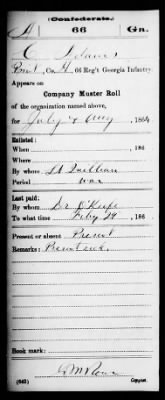 (Confederate.)
A 66 Ga.
C. Adams
Pvt., Co. H, 66 Reg't Georgia Infantry.
Appears on
Company Muster Roll
of the organization named above,
for July & Aug, 1864
Enlisted:
When , 186
Where
By whom Lt
Period war
Last paid:
By whom Dr O'Keefe
To what time Feby 29, 186
Present or absent Present
Remarks:
(642)